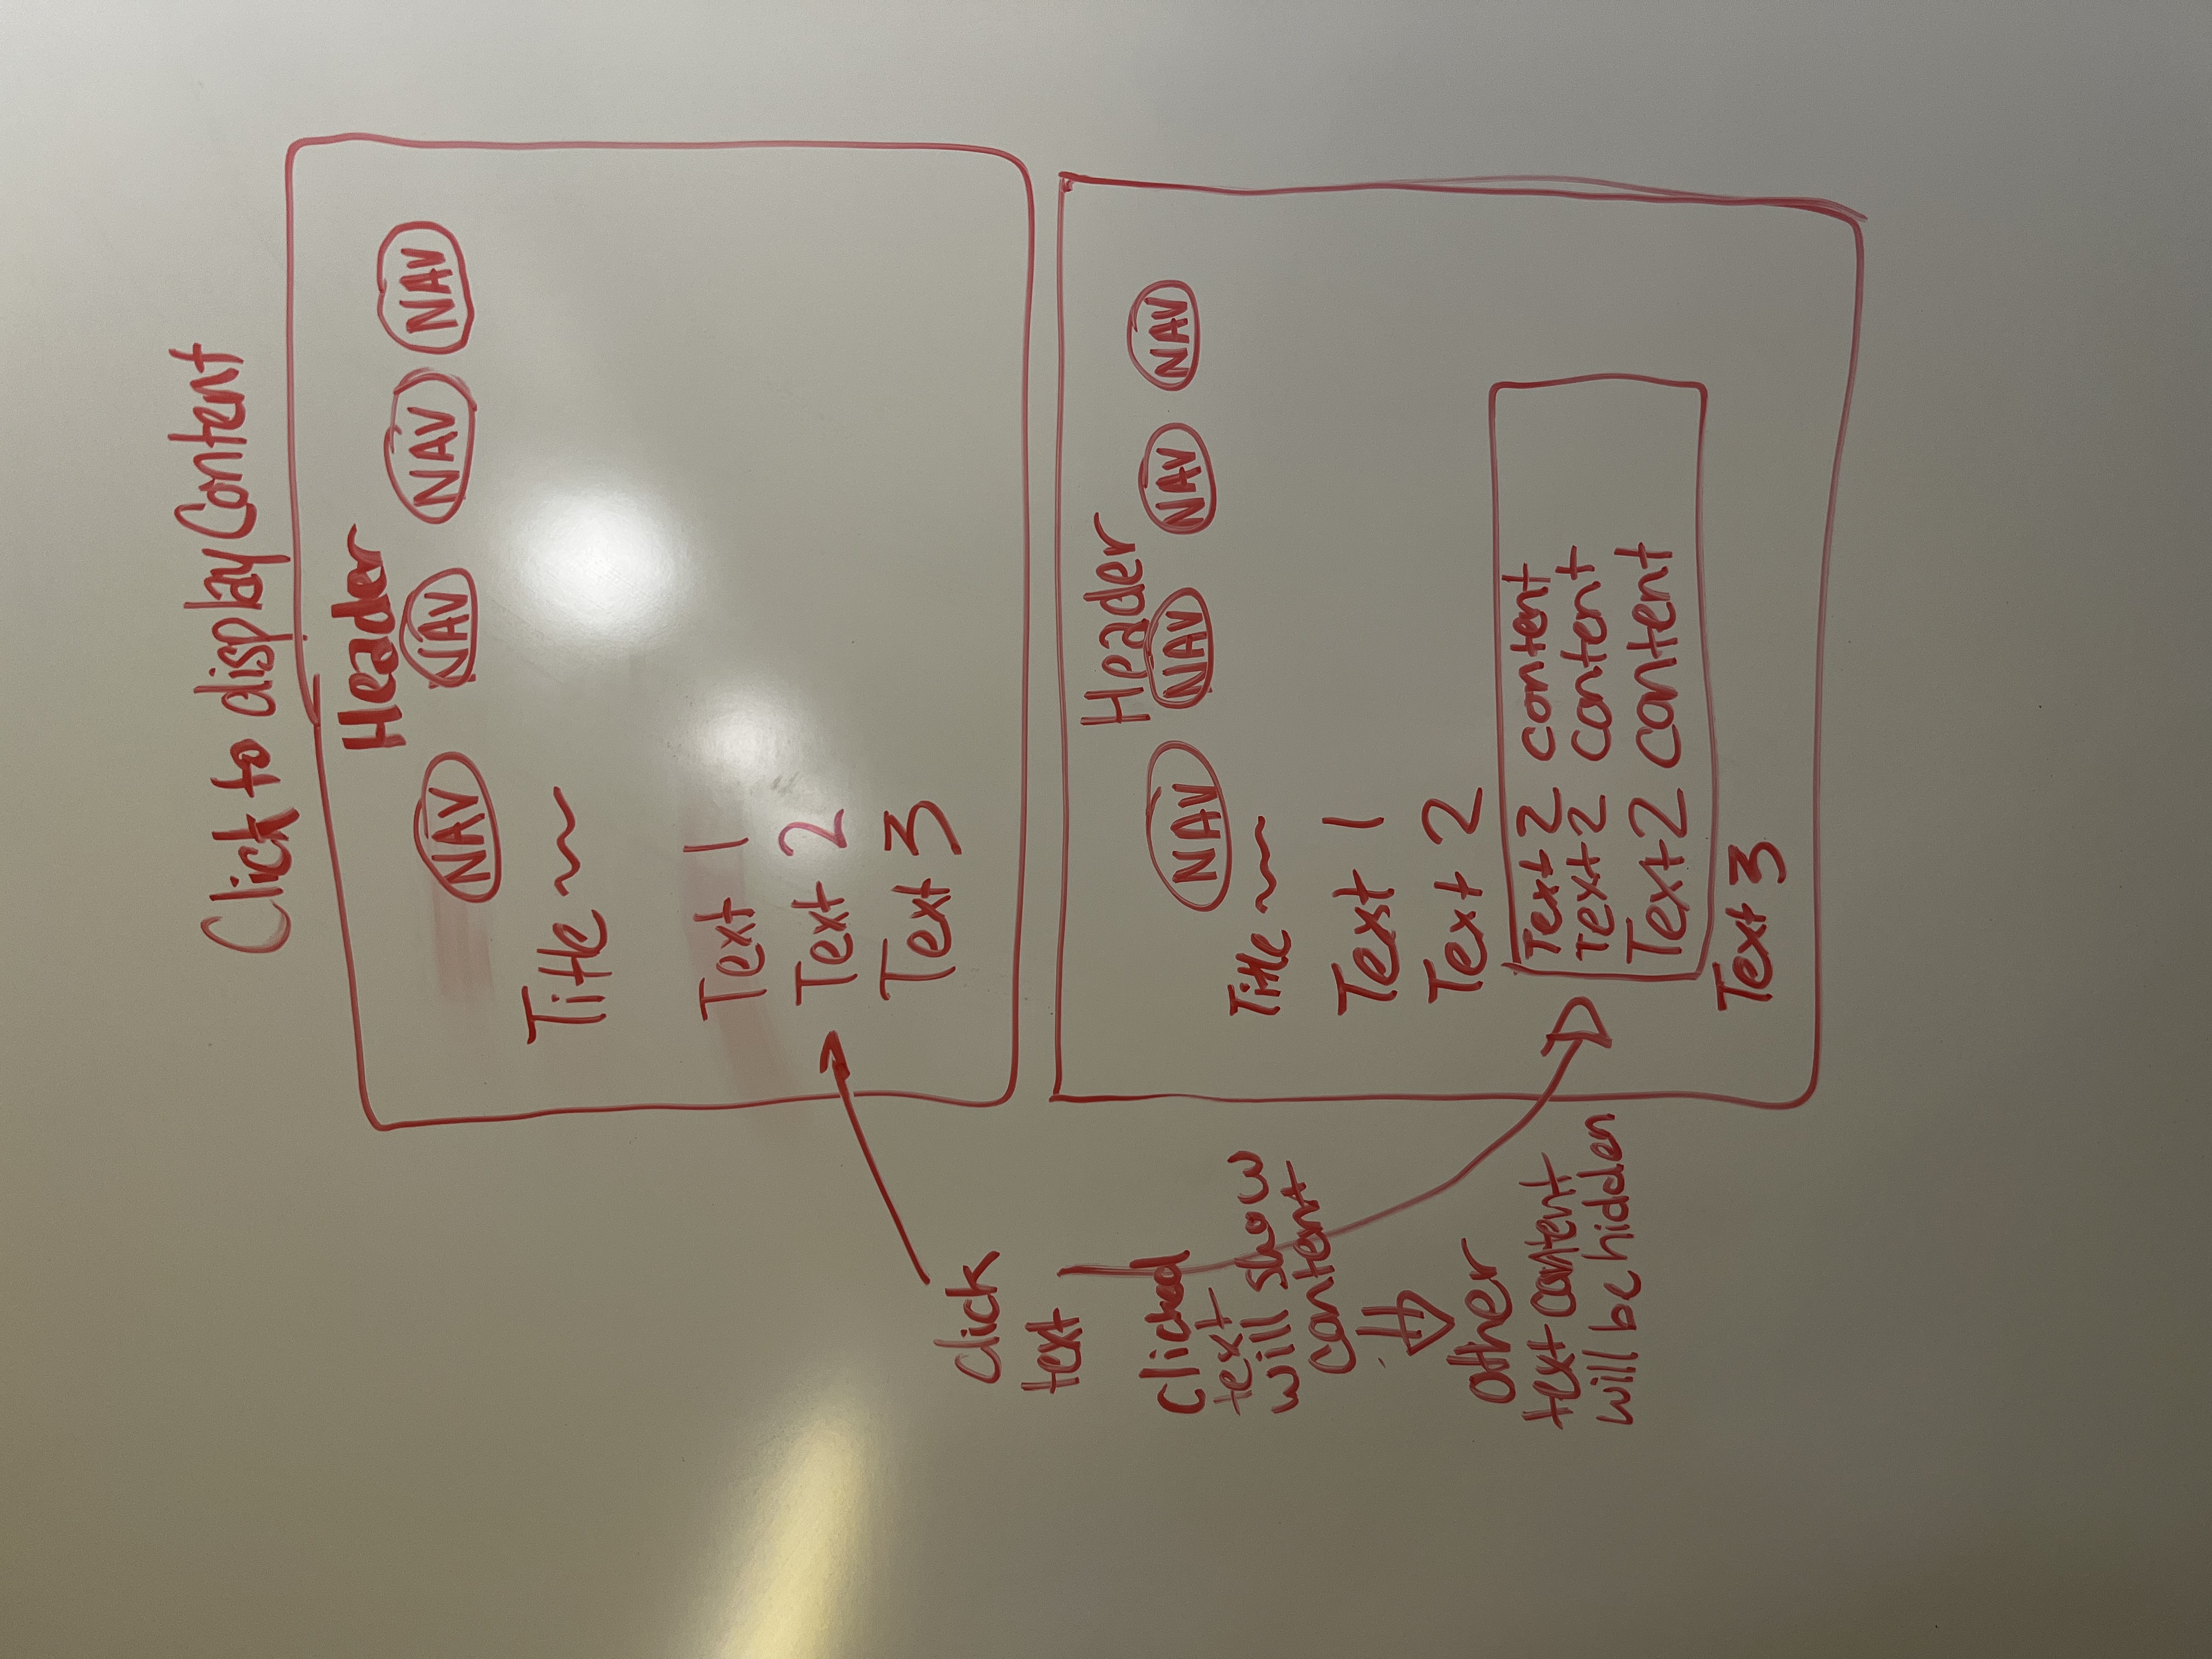 Click to display Content
Header
NAV NAV NAV NAV
Title
Text 1
Text 2
Text 3
click
text
clicked
text
will show
content
other
text content
will be hidden
Header
NAV NAV NAV NAV
Title
Text 1
Text 2
Text 2 content
Text 2 content
Text 2 content
Text 3